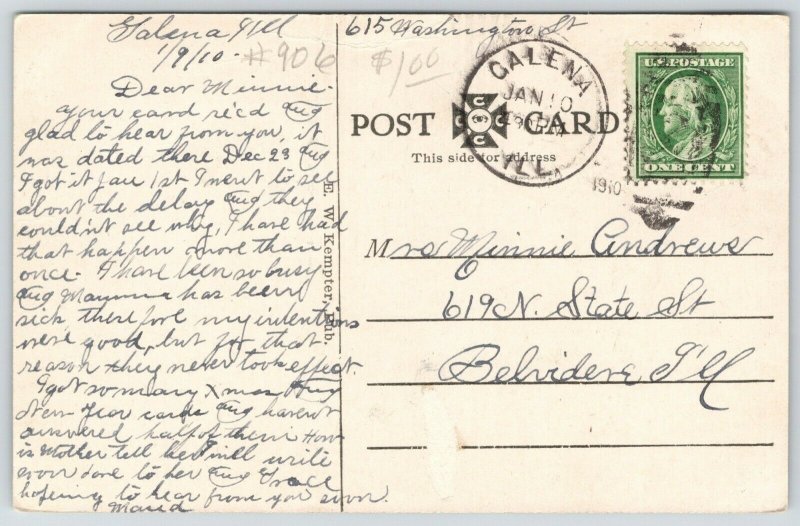 Galena Ill
615 Washington St
1/9/10-
#906
$1.00
Dear Minnie-
your card rec'd and
glad to hear from you, it
was dated there Dec 23 and
I got it Jan 1st I went to see
about the delay and they
couldn't see why, I have had
that happen more than
once. I have been so busy
and Mamma has been
sick therefore my intentions
were good, but for that
reason they never took effect.
I got so many Xmas and
New Year cards and havent
answered half of them How
is Mother tell her will write
soon love to her and Grace
hopeing to hear from you soon.
Maud
E. W. Kempter, Pub.
POST CARD
This side for address
GALENA
JAN 10
ILL.
1910
U.S. POSTAGE
ONE CENT
Mrs Minnie Andrews
619 N. State St
Belvidere Ill